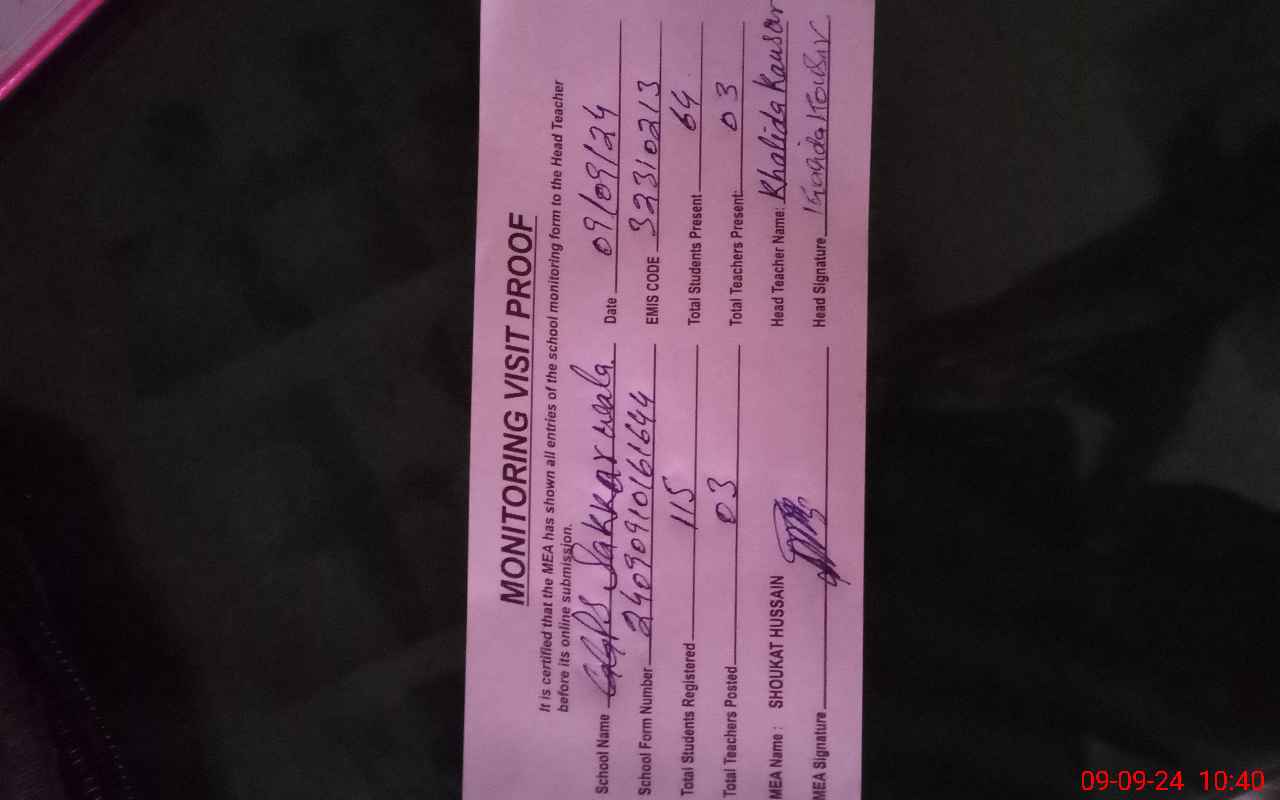 MONITORING VISIT PROOF
It is certified that the MEA has shown all entries of the school monitoring form to the Head Teacher
before its online submission.
School Name GGPS Sakkar wala. Date 09/09/24
School Form Number 24090910161644 EMIS CODE 32310213
Total Students Registered 115 Total Students Present 64
Total Teachers Posted 03 Total Teachers Present: 03
MEA Name : SHOUKAT HUSSAIN Head Teacher Name: Khalida Kausar
MEA Signature Head Signature
09-09-24 10:40